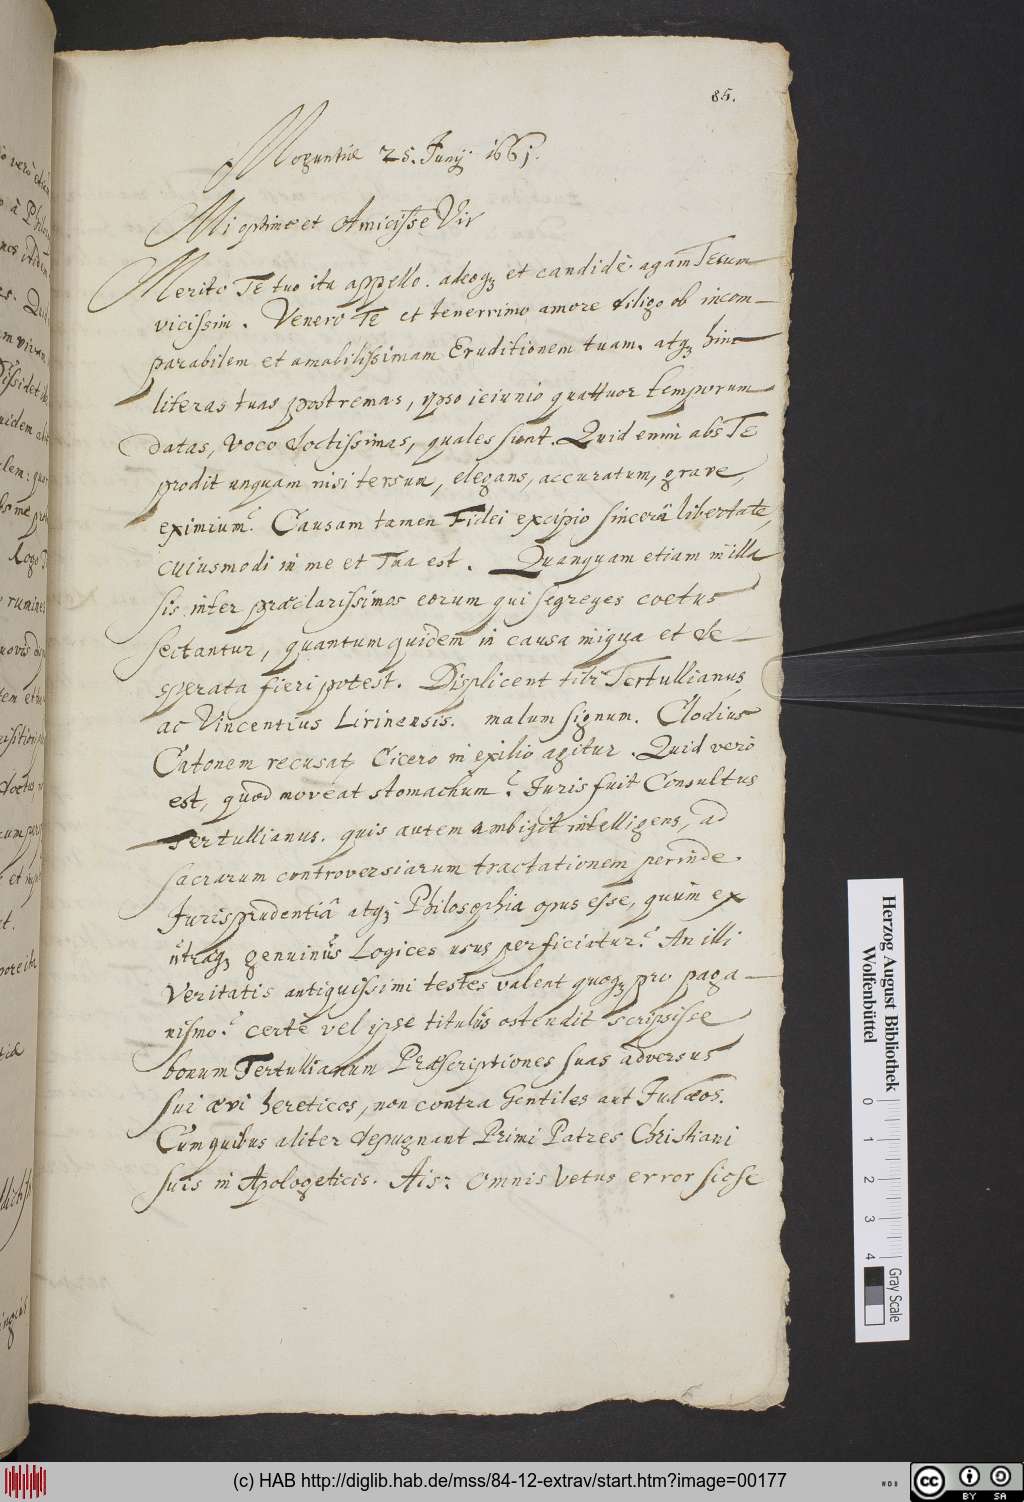 85.
Moguntiæ 25. Junij 1661.
Mi optime et Amicisse Vir
Merito Te tuo ita appello. adeoq; et candidè agam Tecum
vicissim. Venero Te et tenerrimo amore diligo ob incom-
parabilem et amabilissimam Eruditionem tuam. atq; hinc
literas tuas postremas, ipso ieiunio quattuor temporum
datas, voco doctissimas, quales sunt. Quid enim abs Te
prodit unquam nisi tersum, elegans, accuratum, grave,
eximium? Causam tamen Fidei excipio sincerâ libertate,
cuiusmodi in me et Tua est. Quanquam etiam in illa
sis inter præclarissimos eorum qui segreges coetus
sectantur, quantum quidem in causa iniqua et de-
sperata fieri potest. Displicent tibi Tertullianus,
ac Vincentius Lirinensis. malum signum. Clodius
Catonem recusat, Cicero in exilio agitur. Quid verò
est, quod moveat stomachum? Juris fuit Consultus
Tertullianus. quis autem ambigit intelligens, ad
sacrarum controversiarum tractationem perinde
Jurisprudentiâ atq; Philosophia opus esse, quum ex
utraq; genuinus Logices usus perficiatur? An illi
Veritatis antiquissimi testes valent quoq; pro paga-
nismo? certè vel ipse titulus ostendit scripsisse
bonum Tertullianum Præscriptiones suas adversus
sui ævi hereticos, non contra Gentiles aut Judæos.
Cum quibus aliter depugnant Primi Patres Christiani
suis in Apologeticis. Ais: Omnis vetus error sic se
Herzog August Bibliothek
Wolfenbüttel
0 1 2 3 4
Gray Scale
(c) HAB http://diglib.hab.de/mss/84-12-extrav/start.htm?image=00177
cc BY SA